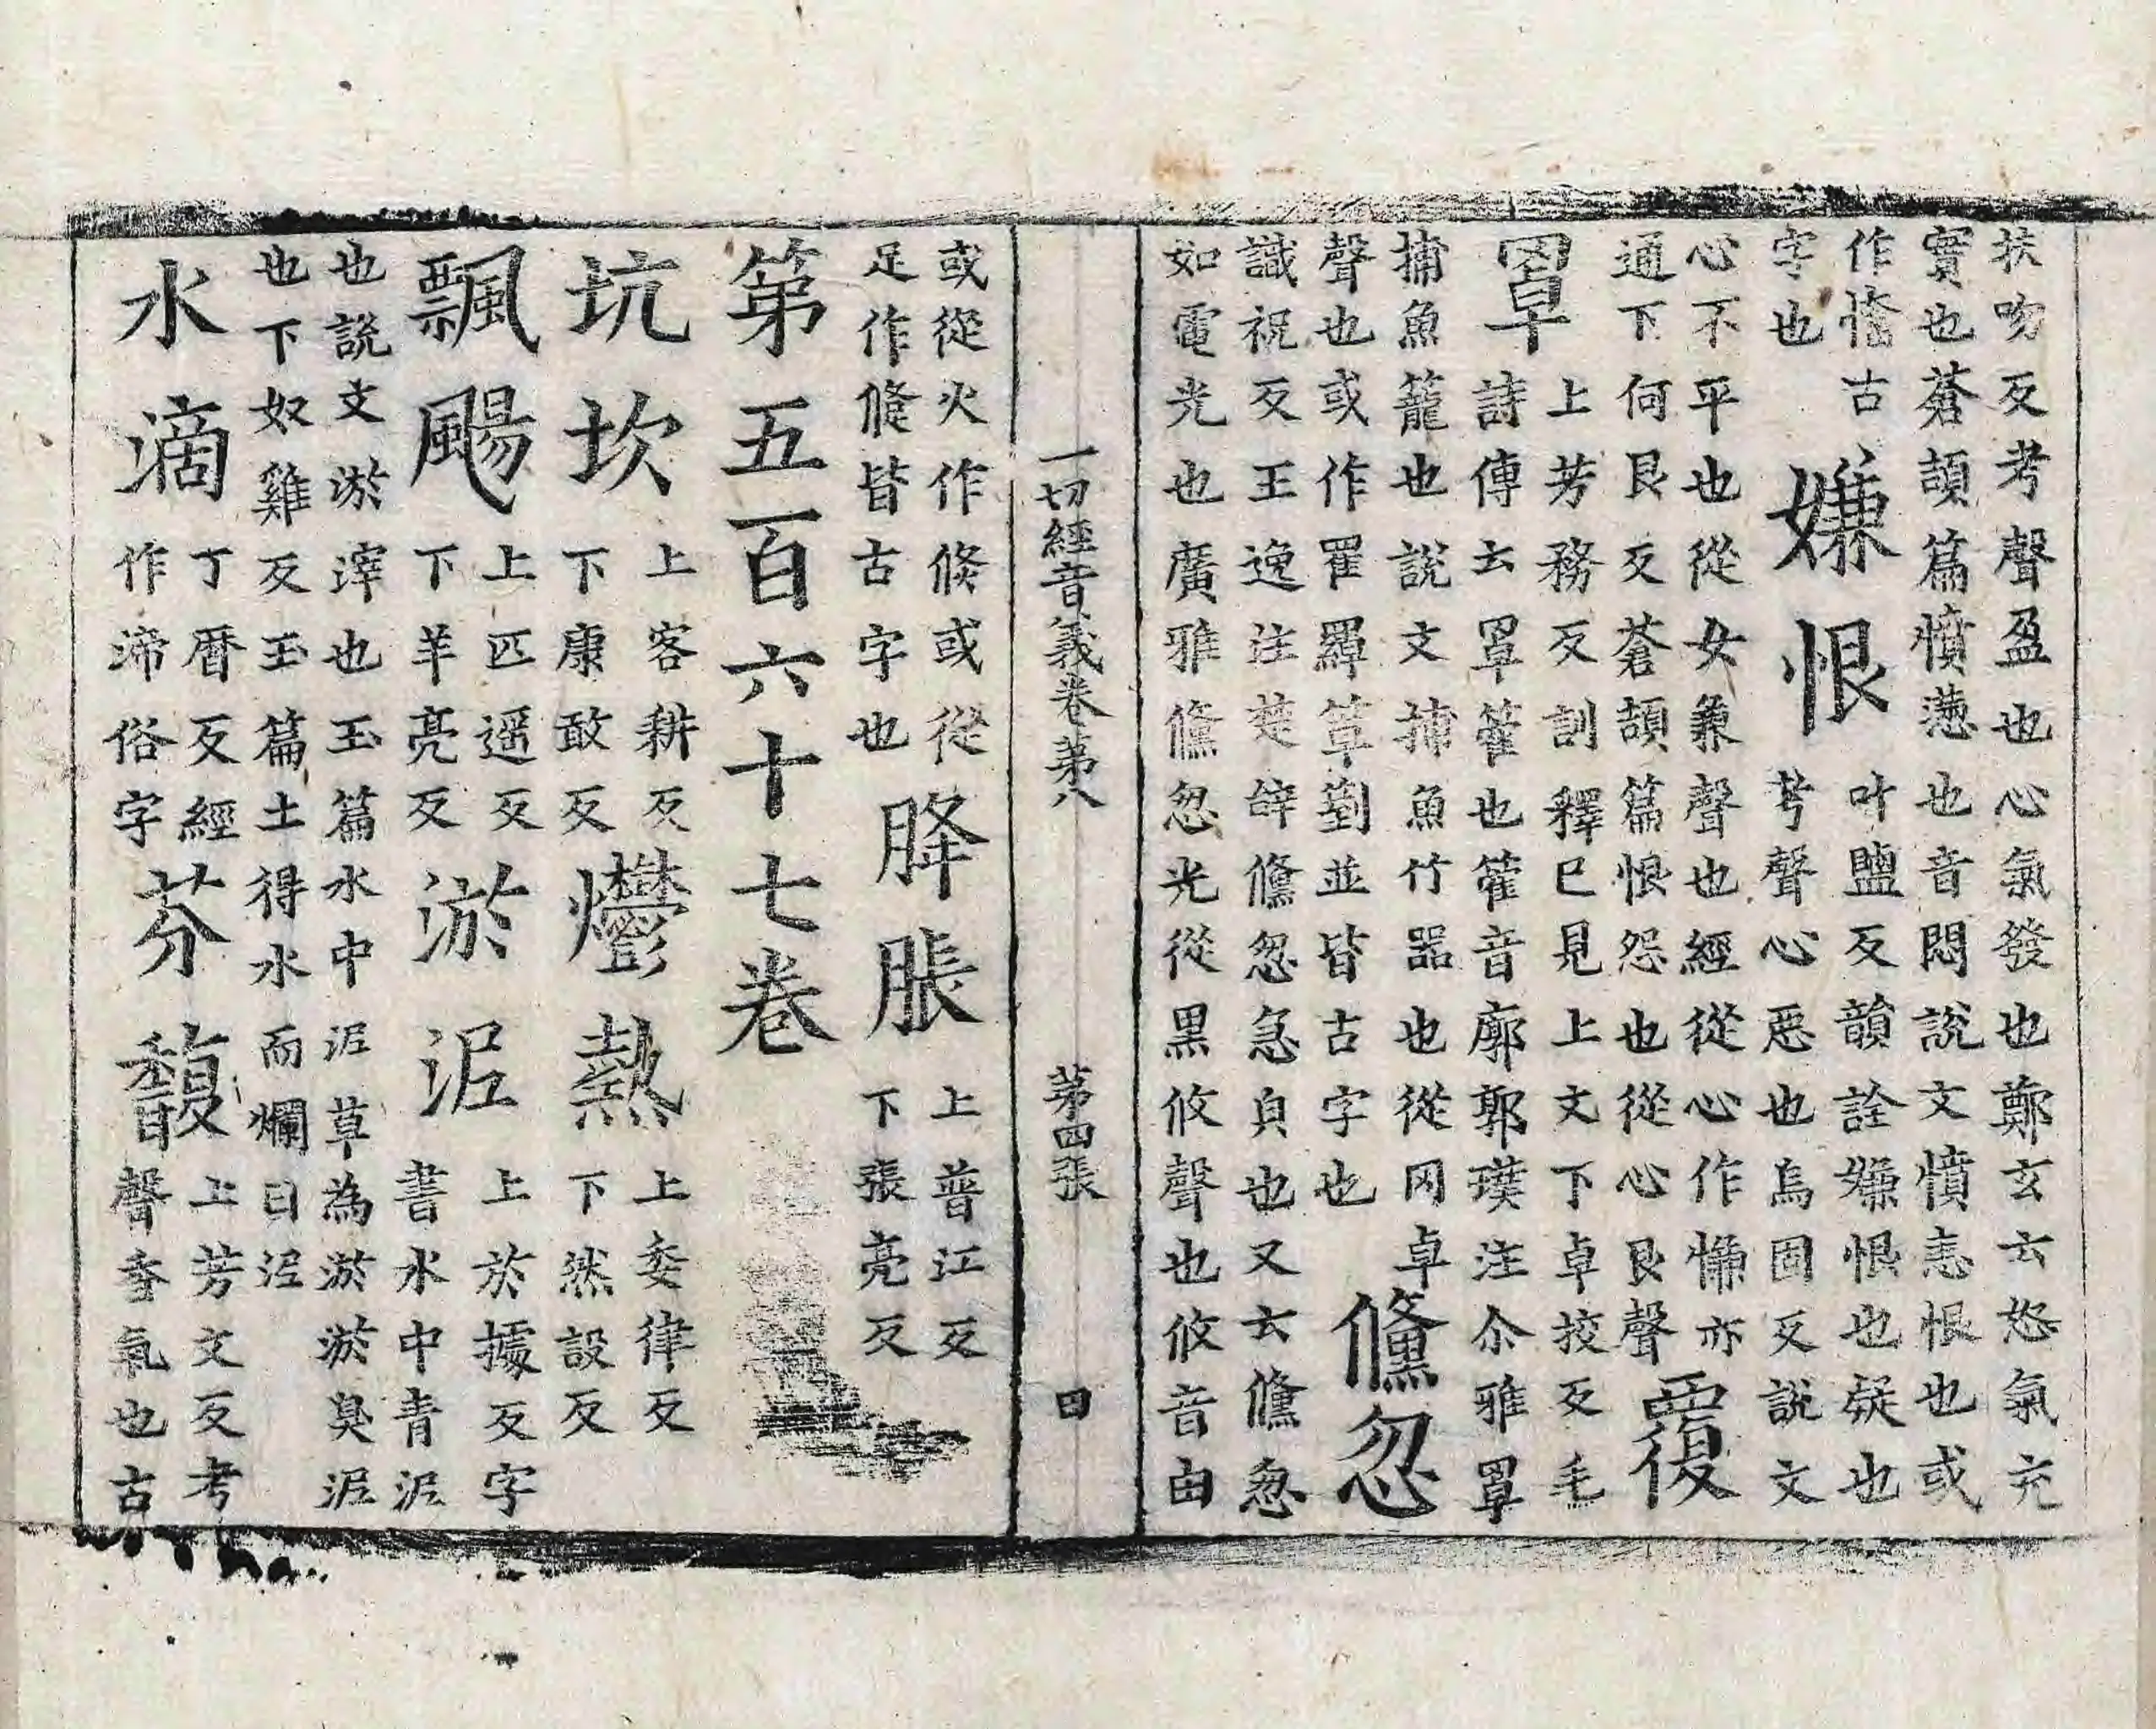 扶吻反考聲盈也心氣發也鄭玄云怒氣充
實也蒼頡篇憤懣也音悶說文憤恚恨也或
作憯古
字也
嫌恨
叶鹽反韻詮嫌恨也疑也
考聲心惡也烏固反說文
心不平也從女兼聲也經從心作慊亦
通下何艮反蒼頡篇恨怨也從心艮聲
覆
罩
上芳務反訓釋已見上文下卓挍反毛
詩傳云罩籗也籗音廓郭璞注尒雅罩
捕魚籠也說文捕魚竹器也從冈卓
聲也或作䍜䍦䈇劄並皆古字也
儵忽
識祝反王逸注楚辝儵忽急皃也又云儵忽
如電光也廣雅儵忽光從黑攸聲也攸音由
一切經音義卷第八 第四張 四
或從火作倐或從
足作㣪皆古字也
胮脹
上普江反
下張亮反
第五百六十七卷
坑坎
上客耕反
下康敢反
爩熱
上委律反
下然設反
飄颺
上匹遥反
下羊亮反
淤泥
上於據反字
書水中青泥
也說文淤滓也玉篇水中泥草為淤淤臭泥
也下奴雞反玉篇土得水而爛曰泥
水滴
丁曆反經
作渧俗字
芬馥
上芳文反考
聲香氣也古